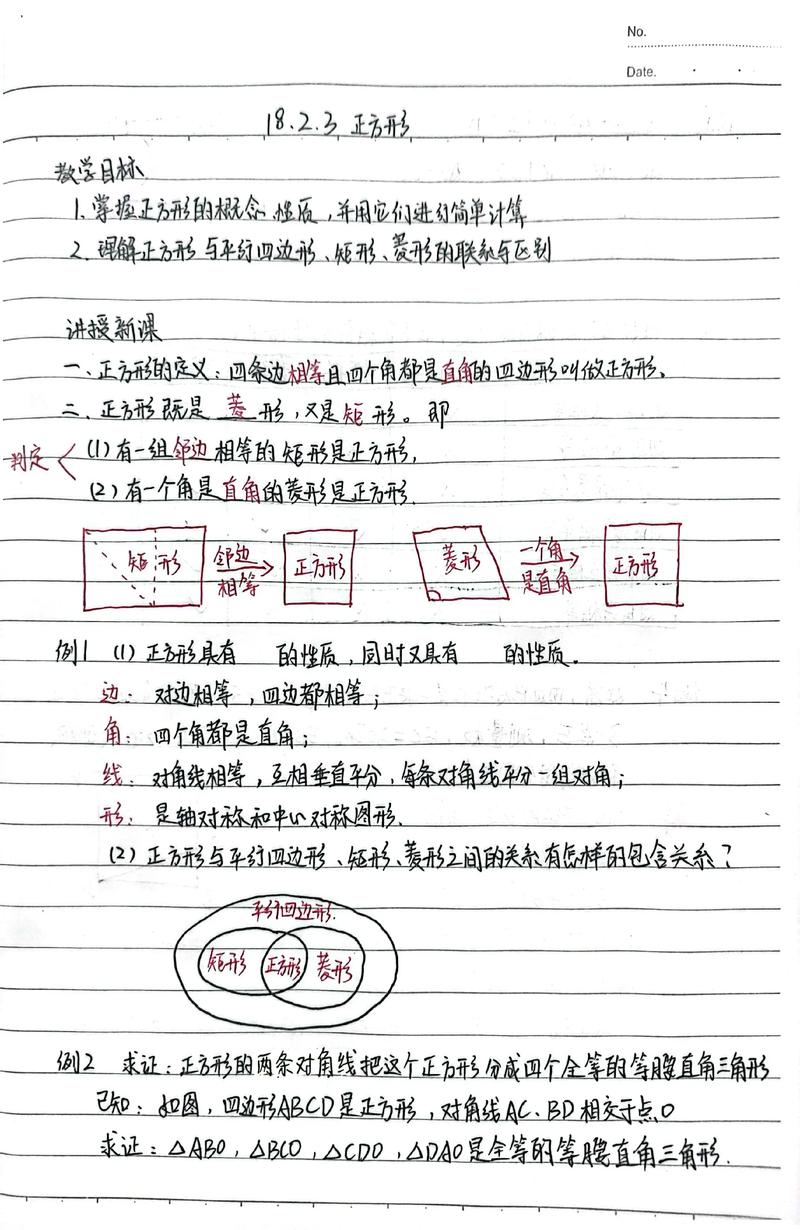 No.
Date.
18.2.3 正方形
教学目标
1. 掌握正方形的概念、性质，并用它们进行简单计算
2. 理解正方形与平行四边形、矩形、菱形的联系与区别
讲授新课
一、正方形的定义：四条边相等且四个角都是直角的四边形叫做正方形、
二、正方形既是 菱 形，又是矩形。即
判定
(1) 有一组邻边相等的矩形是正方形，
(2) 有一个角是直角的菱形是正方形.
矩形 邻边相等 正方形 菱形 一个角是直角 正方形
例1 (1) 正方形具有 的性质，同时又具有 的性质。
边：对边相等，四边都相等；
角：四个角都是直角；
线：对角线相等，互相垂直平分，每条对角线平分一组对角；
形：是轴对称和中心对称图形.
(2) 正方形与平行四边形、矩形、菱形之间的关系有怎样的包含关系？
平行四边形.
矩形 正方形 菱形
例2 求证：正方形的两条对角线把这个正方形分成四个全等的等腰直角三角形
已知：如图，四边形ABCD是正方形，对角线AC、BD相交于点O
求证：△ABO，△BCO，△CDO，△DAO是全等的等腰直角三角形.